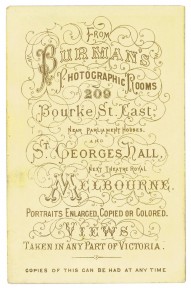 FROM
BURMAN'S
PHOTOGRAPHIC ROOMS
209
Bourke St. East.
NEAR PARLIAMENT HOUSES.
AND
ST. GEORGES HALL.
NEXT THEATRE ROYAL
MELBOURNE.
PORTRAITS ENLARGED, COPIED OR COLORED.
VIEWS
TAKEN IN ANY PART OF VICTORIA.
COPIES OF THIS CAN BE HAD AT ANY TIME